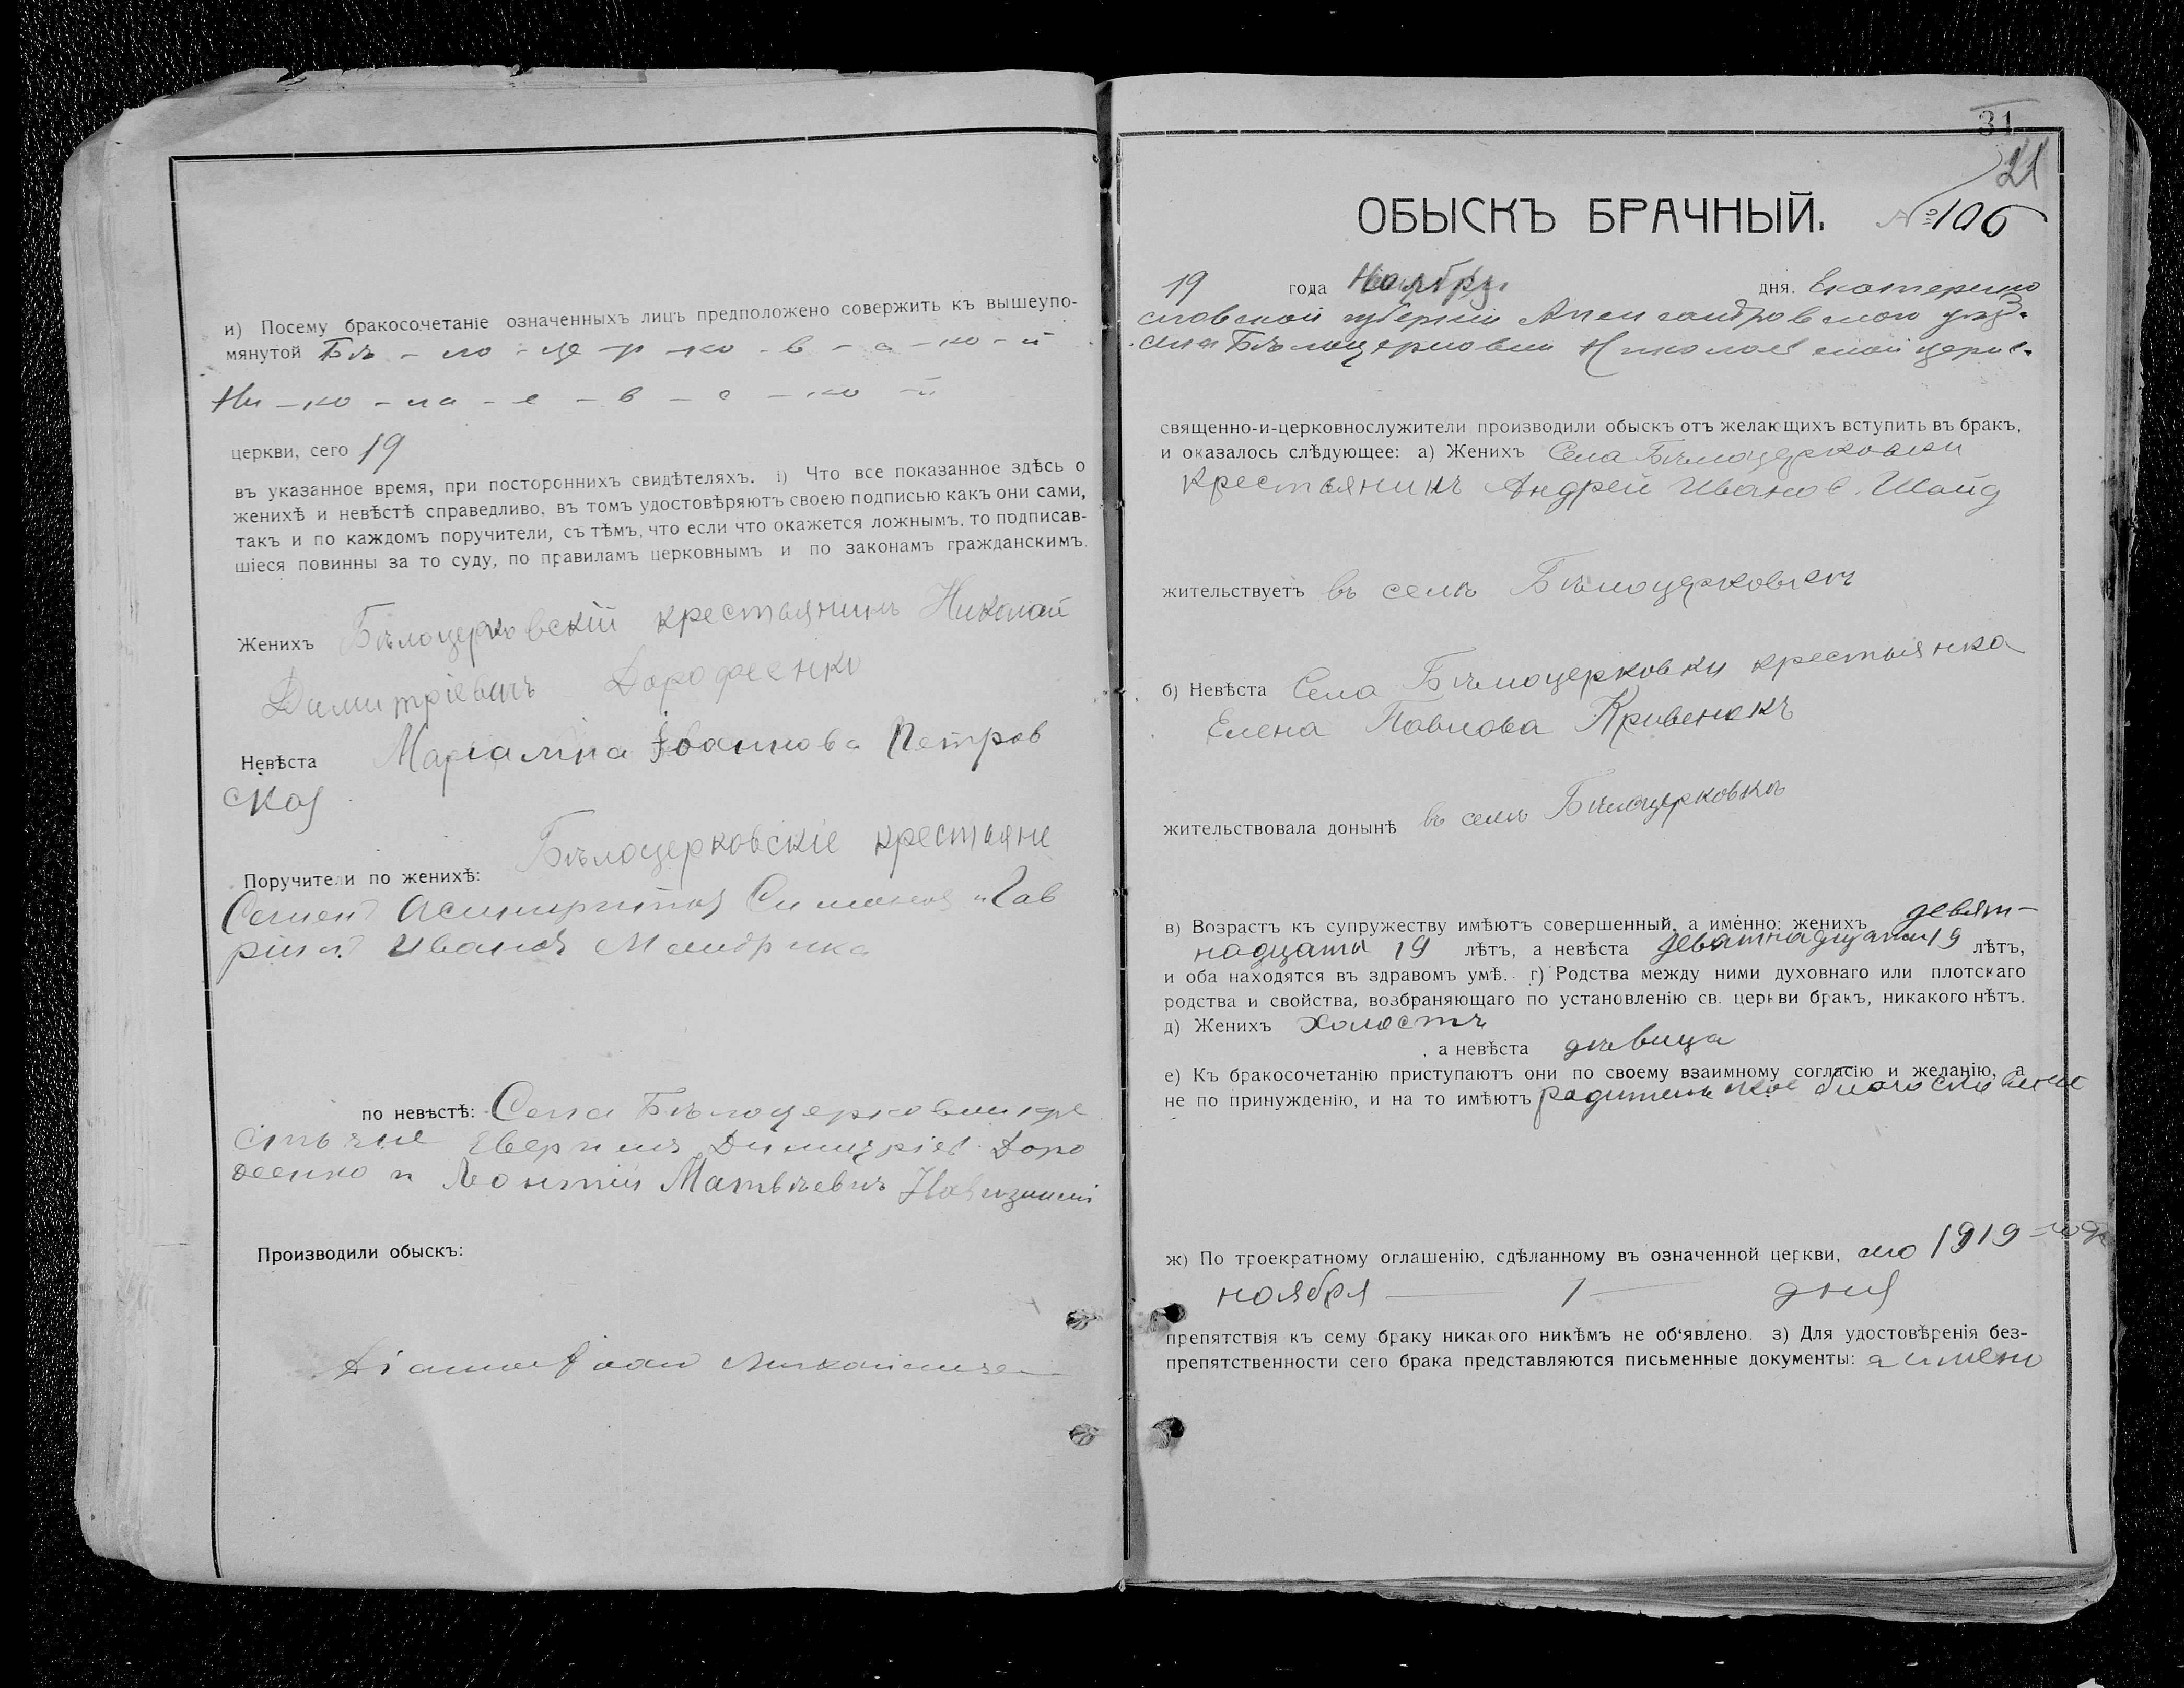 и) Посему бракосочетаніе означенныхъ лицъ предположено совержить къ вышеупо-
мянутой Бѣ - ло - це - р - ко - в - с - ко - й
Ни - ко - ла - е - в - с - ко - й
церкви, сего 19
въ указанное время, при постороннихъ свидѣтеляхъ. i) Что все показанное здѣсь о
женихѣ и невѣстѣ справедливо, въ томъ удостовѣряютъ своею подписью какъ они сами,
такъ и по каждомъ поручители, съ тѣмъ, что если что окажется ложнымъ, то подписав-
шіеся повинны за то суду, по правиламъ церковнымъ и по законамъ гражданскимъ.
Женихъ Бѣлоцерковскій крестьянинъ Николай
Димитріевичъ Дорофеенко
Невѣста Маріамна Іоаннова Петров
ская
Поручители по женихѣ: Бѣлоцерковскіе крестьяне
Семенъ и Гав
Иванов Мандрика
по невѣстѣ: Села Бѣлоцерковки кре
стьяне Димитріев Доро
феенко и Леонтій Матвѣевичъ
Производили обыскъ:
31
21
ОБЫСКЪ БРАЧНЫЙ. № 106
19 года Ноября дня. Екатерино
славской губерніи Александровского уѣз.
села Бѣлоцерковки Николаевской церкв.
священно-и-церковнослужители производили обыскъ отъ желающихъ вступить въ бракъ,
и оказалось слѣдующее: а) Женихъ Села Бѣлоцерковки
крестьянинъ Андрей Иванов Шайд
жительствуетъ въ селѣ Бѣлоцерковкѣ
б) Невѣста Села Бѣлоцерковки крестьянка
Елена Павлова Кривенокъ
жительствовала донынѣ въ селѣ Бѣлоцерковкѣ
в) Возрастъ къ супружеству имѣютъ совершенный, а именно: женихъ девят-
надцати 19 лѣтъ, а невѣста девятнадцати 19 лѣтъ,
и оба находятся въ здравомъ умѣ. г) Родства между ними духовнаго или плотскаго
родства и свойства, возбраняющаго по установленію св. церкви бракъ, никакого нѣтъ.
д) Женихъ холостъ
а невѣста дѣвица
е) Къ бракосочетанію приступаютъ они по своему взаимному согласію и желанію, а
не по принужденію, и на то имѣютъ родительское благословеніе
ж) По троекратному оглашенію, сдѣланному въ означенной церкви, сего 1919 года
ноября — 1 — дня
препятствія къ сему браку никакого никѣмъ не об'явлено. з) Для удостовѣренія без-
препятственности сего брака представляются письменные документы: а имено